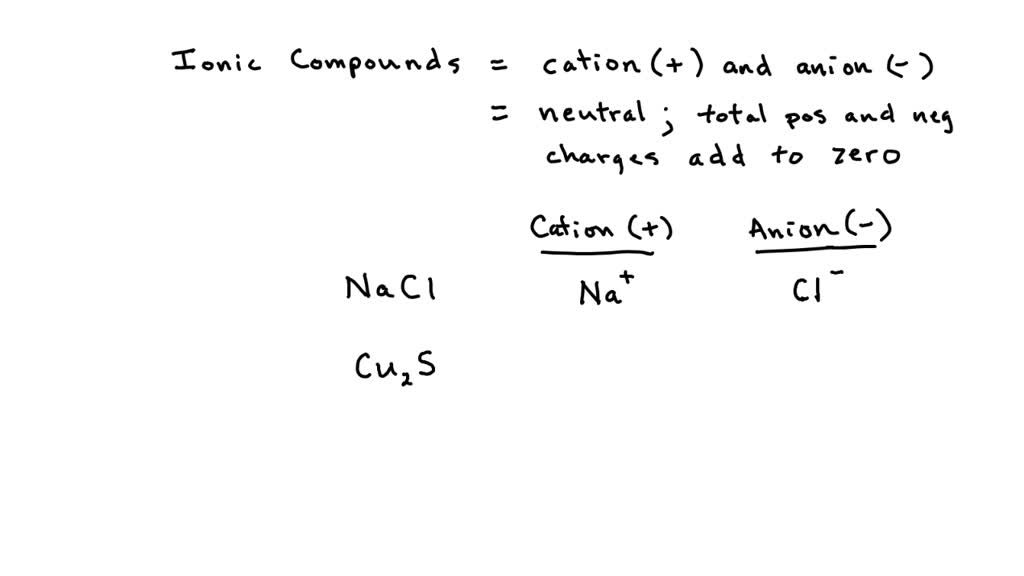 Ionic Compounds = cation (+) and anion (-)
= neutral; total pos and neg
charges add to zero
Cation (+) Anion (-)
NaCl Na⁺ Cl⁻
Cu₂S